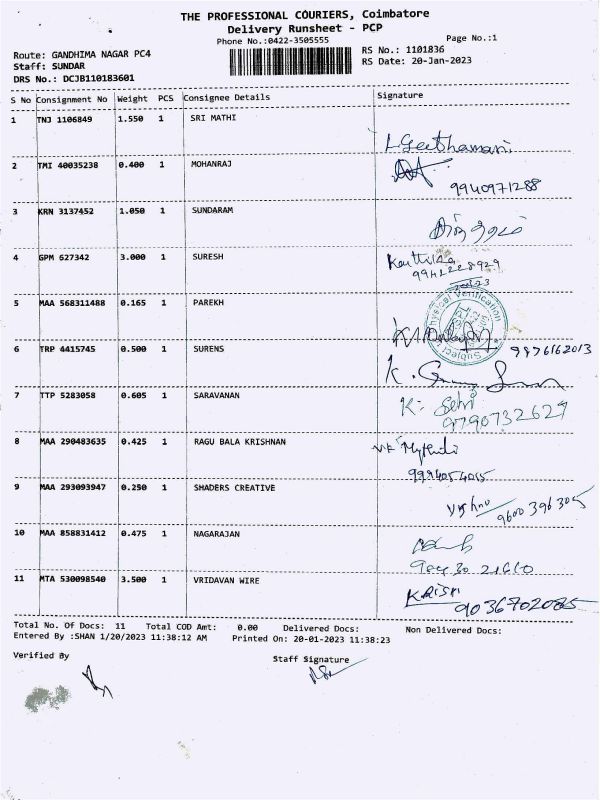 THE PROFESSIONAL COURIERS, Coimbatore
Delivery Runsheet - PCP
Phone No.:0422-3505555
Page No.:1
Route: GANDHIMA NAGAR PC4
RS No.: 1101836
Staff: SUNDAR
RS Date: 20-Jan-2023
DRS No.: DCJB110183601
S No Consignment No Weight PCS Consignee Details Signature
1 TNJ 1106849 1.550 1 SRI MATHI
L Geethamani
2 TMI 40035238 0.400 1 MOHANRAJ
9940971288
3 KRN 3137452 1.050 1 SUNDARAM
4 GPM 627342 3.000 1 SURESH
5 MAA 568311488 0.165 1 PAREKH
Physical Verification
Subject
6 TRP 4415745 0.500 1 SURENS
K.
7 TTP 5283058 0.605 1 SARAVANAN K. Selvi
9790732629
8 MAA 290483635 0.425 1 RAGU BALA KRISHNAN
9994054015
9 MAA 293093947 0.250 1 SHADERS CREATIVE
Vishnu 9600396305
10 MAA 858831412 0.475 1 NAGARAJAN
11 MTA 530098540 3.500 1 VRIDAVAN WIRE
9036702085
Total No. Of Docs: 11 Total COD Amt: 0.00 Delivered Docs: Non Delivered Docs:
Entered By :SHAN 1/20/2023 11:38:12 AM Printed On: 20-01-2023 11:38:23
Verified By Staff Signature